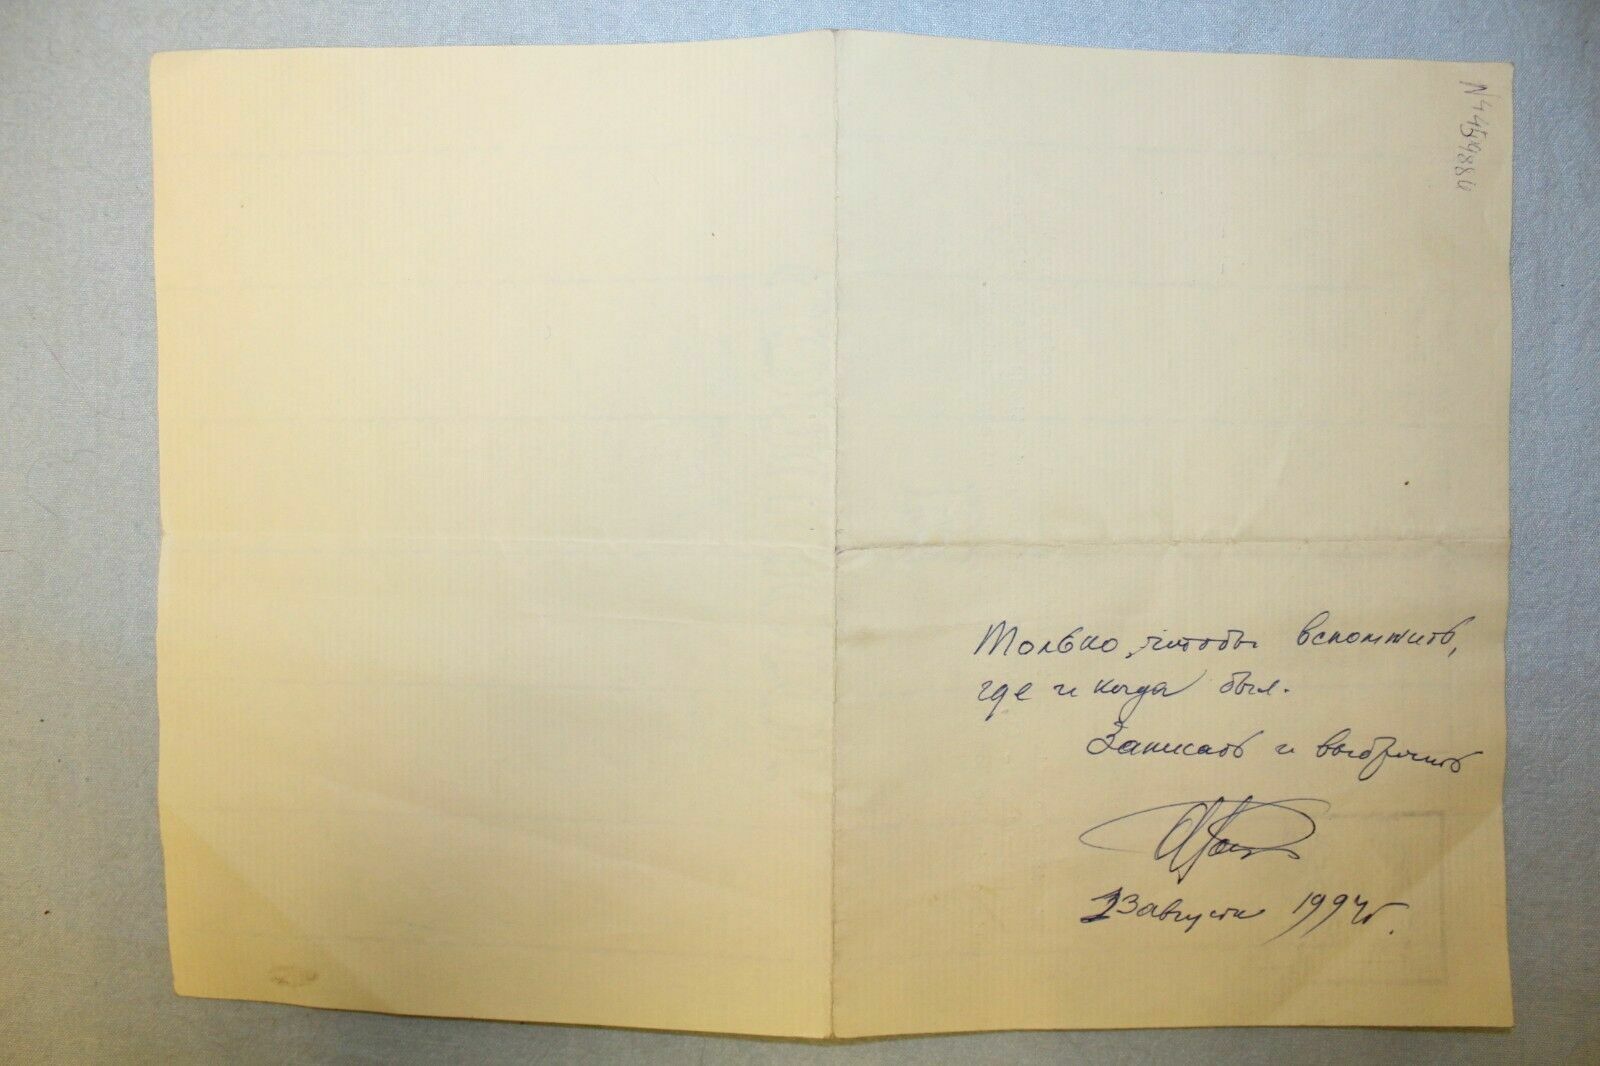 Только, чтобы вспомнить,
где и когда был.
Записать и выбросить
23 августа 1994г.